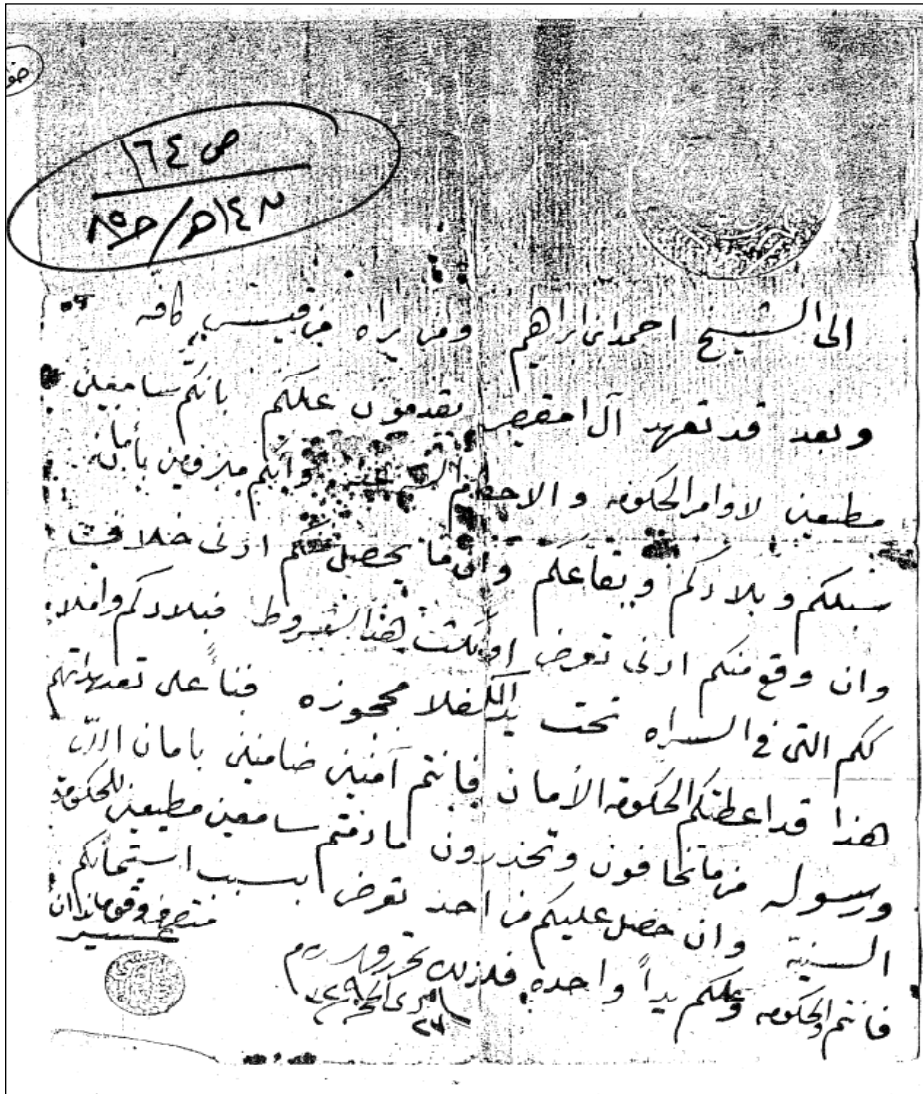 ص ١٦٤
الى الشيخ احمد ابن ابراهيم ومن يراه من قيسي كافه
وبعد قد تعهد آل امقصر يقدمون عليكم بانكم سامعين
مطيعين لاوامر الحكومه والاحكام وانكم ملزومين بأمان
سبلكم وبلادكم وبقاعكم وان ما يحصل منكم ادنى خلاف
وان وقع منكم ادنى تعرض او نكث هذا الشروط فبلادكم واملا
ككم التى في السراه تحت يد الكفلا محجوزه فبناً على تعهداتهم
هذا قد اعطتكم الحكومة الأمان فانتم آمنين ضامنين بامان الله
ورسوله من ما تخافون وتحذرون مادمتم سامعين مطيعين للحكومة
السنية وان حصل عليكم من احد تعرض بسبب استيمانكم
فانتم والحكومه وعلكم يداً واحده فلزم تحرير
متصرف وقوماندان
عسير